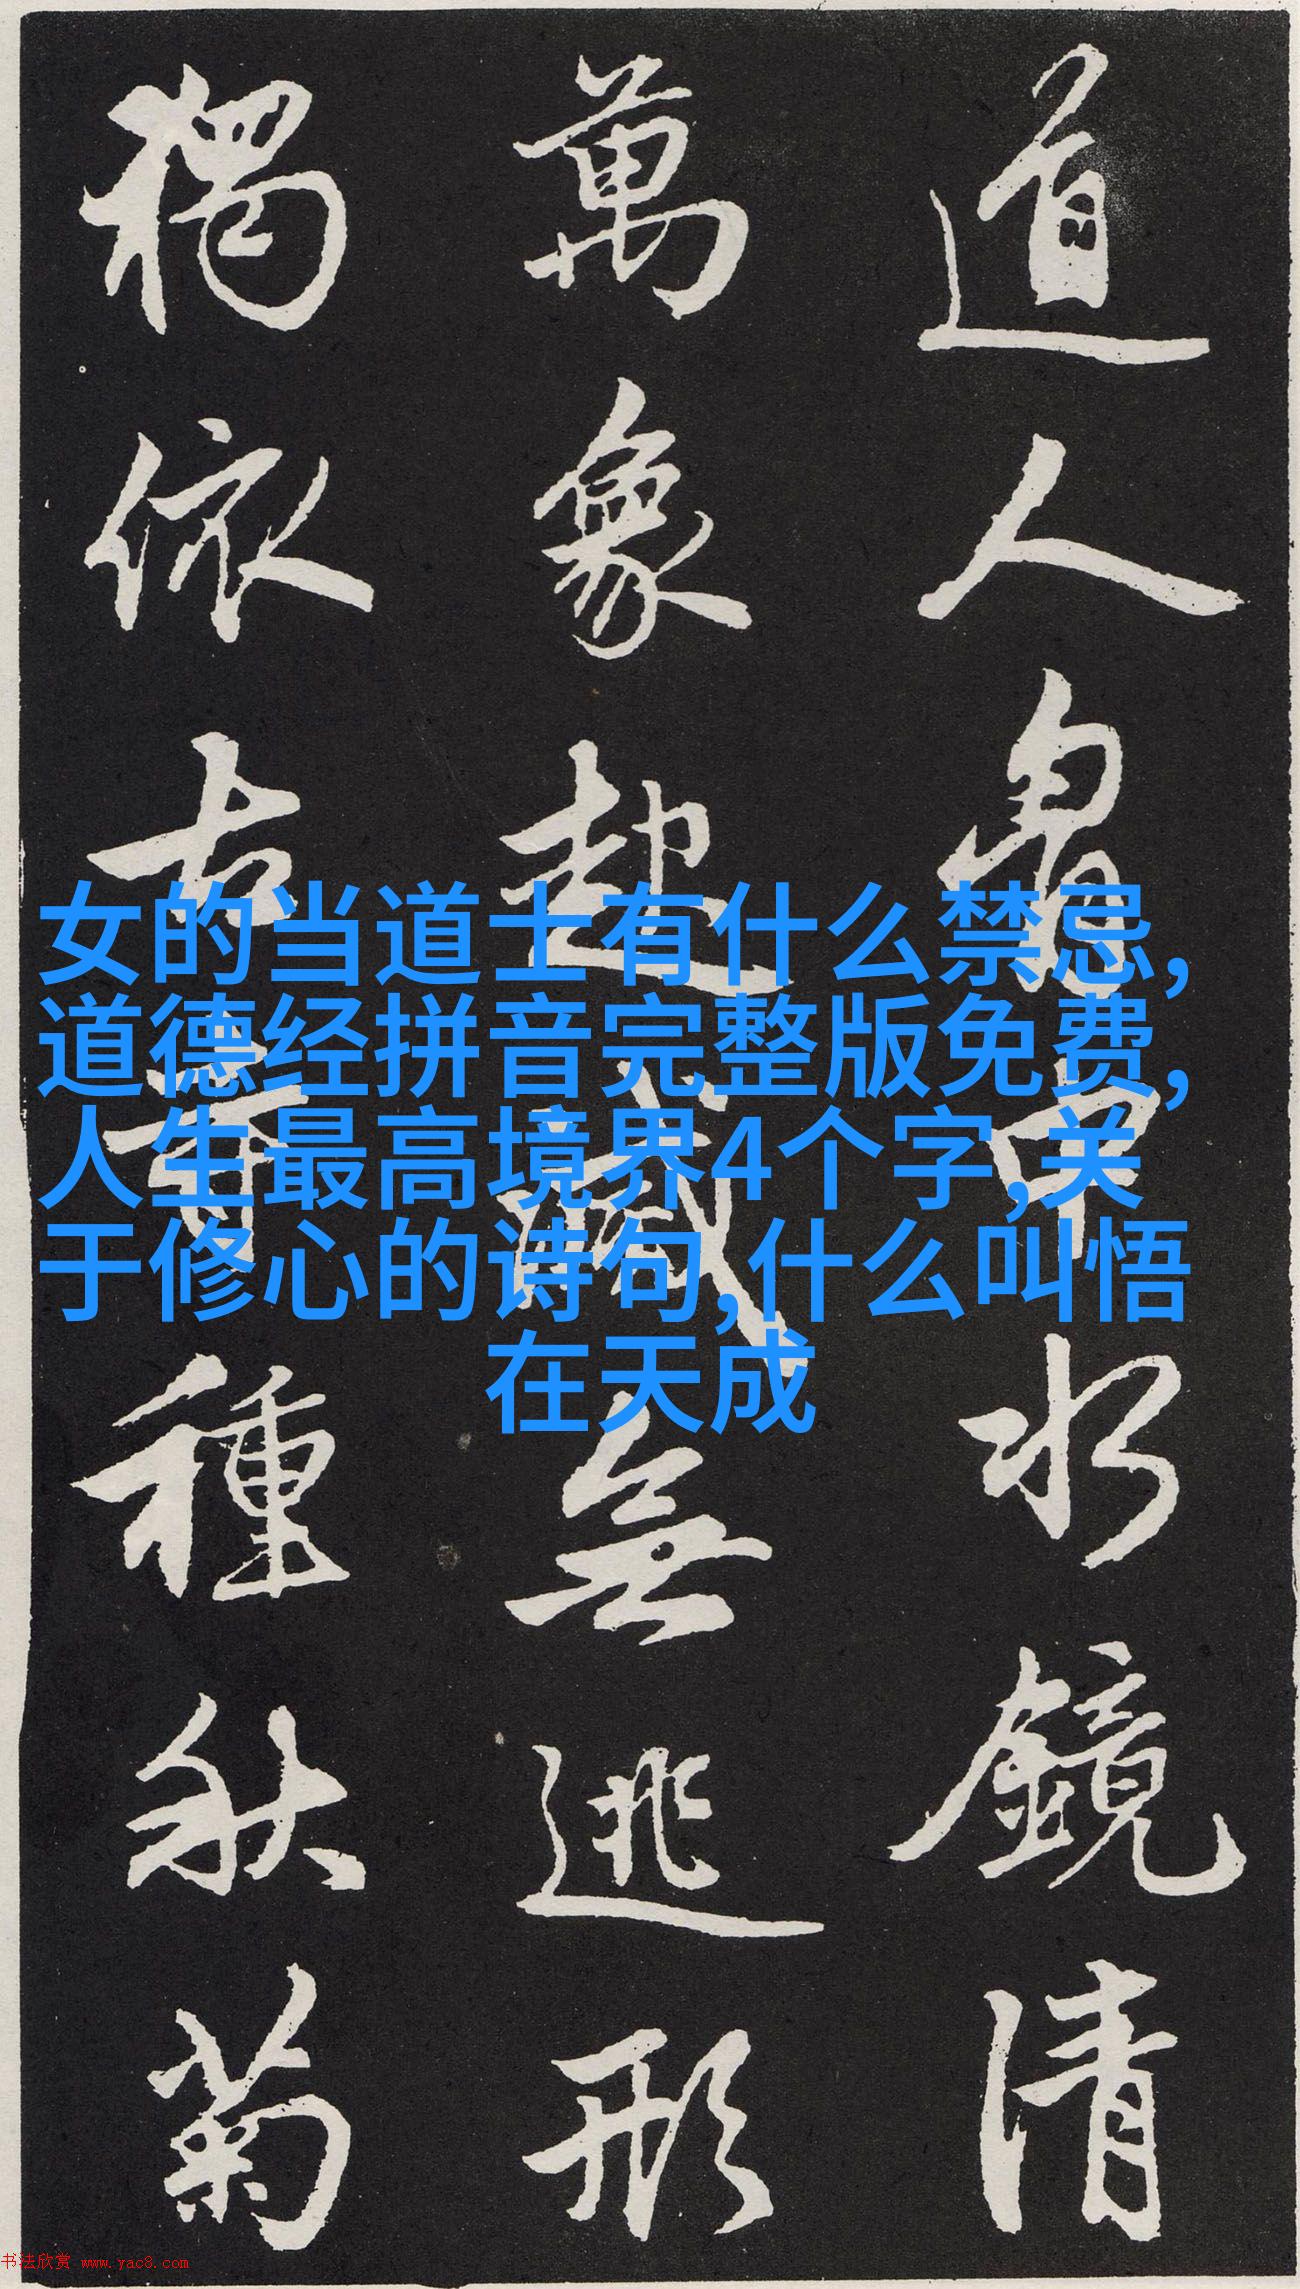 道人胷中水鏡清
萬象起滅無逃形
獨依古寺種秋菊
女的当道士有什么禁忌,
道德经拼音完整版免费,
人生最高境界4个字,关
于修心的诗句,什么叫悟
在天成
书法欣赏 www.yac8.com